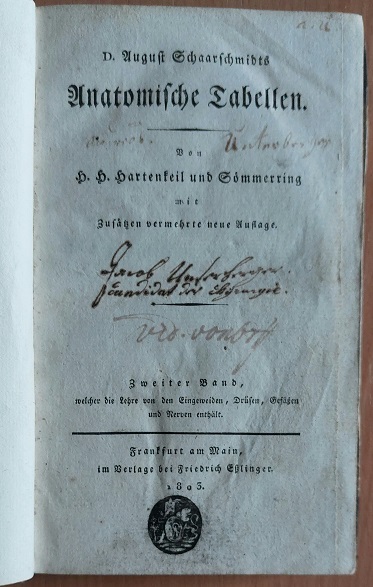 D. August Schaarschmidts
Anatomische Tabellen.
Unterberger
Von
H. H. Hartenkeil und Sömmerring
mit
Zusätzen vermehrte neue Auflage.
Jacob Unterberger
Candidat der Chyrurgie.
Zweiter Band,
welcher die Lehre von den Eingeweiden, Drüsen, Gefäßen
und Nerven enthält.
Frankfurt am Main,
im Verlage bei Friedrich Eßlinger.
1803.